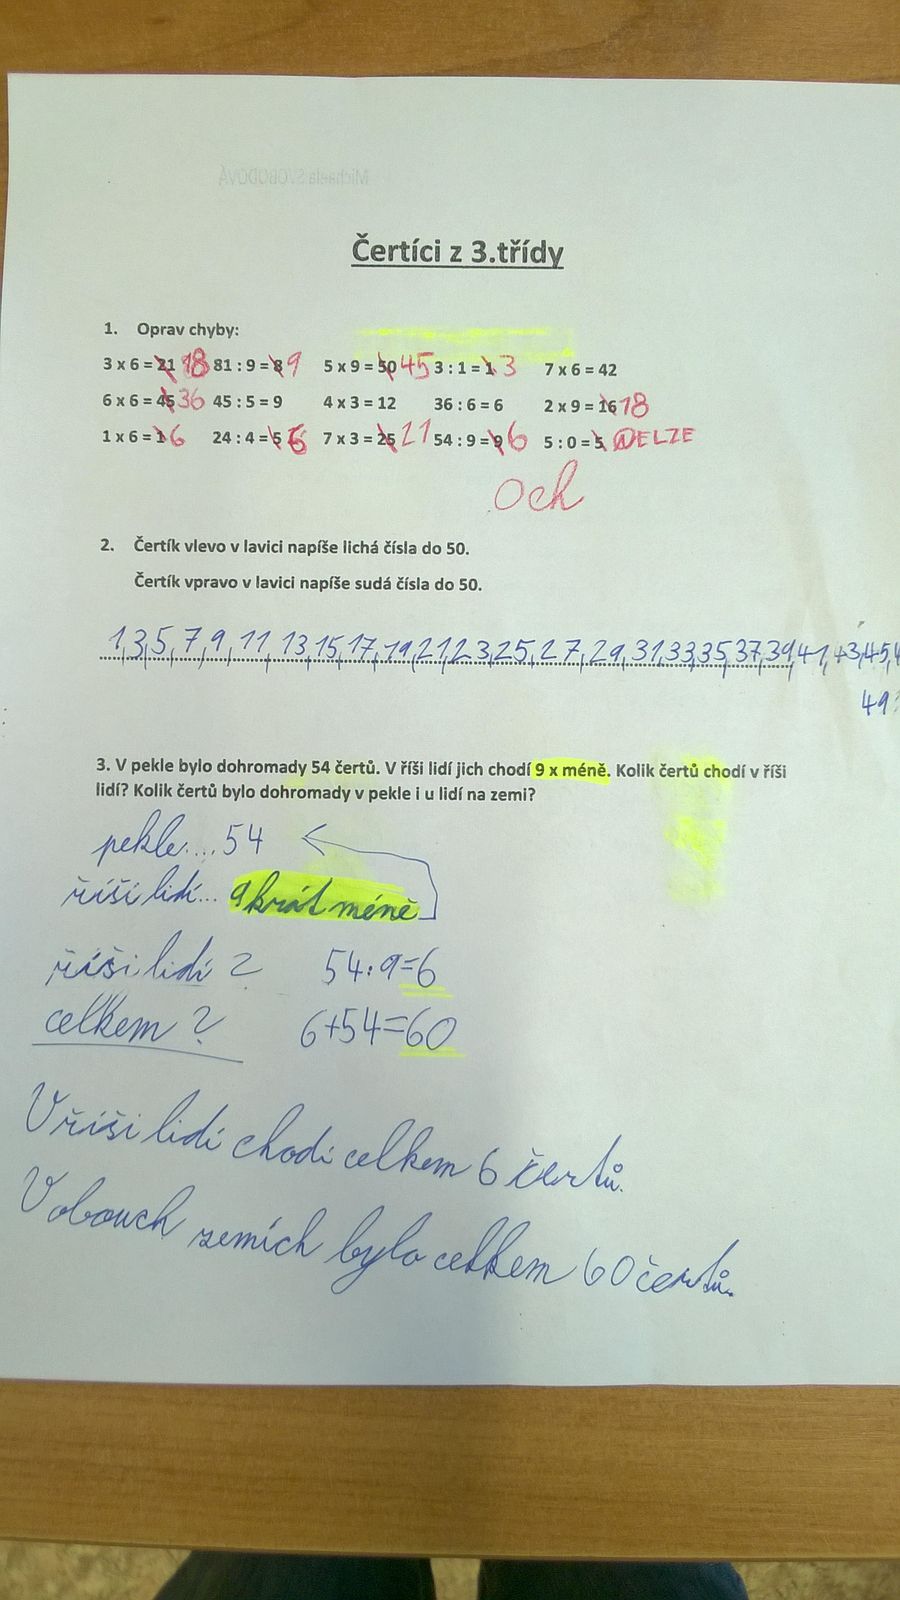 Michaela SVOBODOVÁ
Čertíci z 3.třídy
1. Oprav chyby:
3 x 6 = 21 18 81 : 9 = 8 9 5 x 9 = 50 45 3 : 1 = 1 3 7 x 6 = 42
6 x 6 = 45 36 45 : 5 = 9 4 x 3 = 12 36 : 6 = 6 2 x 9 = 16 18
1 x 6 = 1 6 24 : 4 = 5 6 7 x 3 = 25 21 54 : 9 = 9 6 5 : 0 = 5 NELZE
Och
2. Čertík vlevo v lavici napíše lichá čísla do 50.
Čertík vpravo v lavici napíše sudá čísla do 50.
1,3,5,7,9,11,13,15,17,19,21,23,25,27,29,31,33,35,37,39,41,43,45,4
49
3. V pekle bylo dohromady 54 čertů. V říši lidí jich chodí 9 x méně. Kolik čertů chodí v říši
lidí? Kolik čertů bylo dohromady v pekle i u lidí na zemi?
pekle....54
říši lidí... 9krát méně
říši lidí ? 54:9=6
celkem ? 6+54=60
V říši lidí chodí celkem 6 čertů.
V obouch zemích bylo celkem 60 čertů.